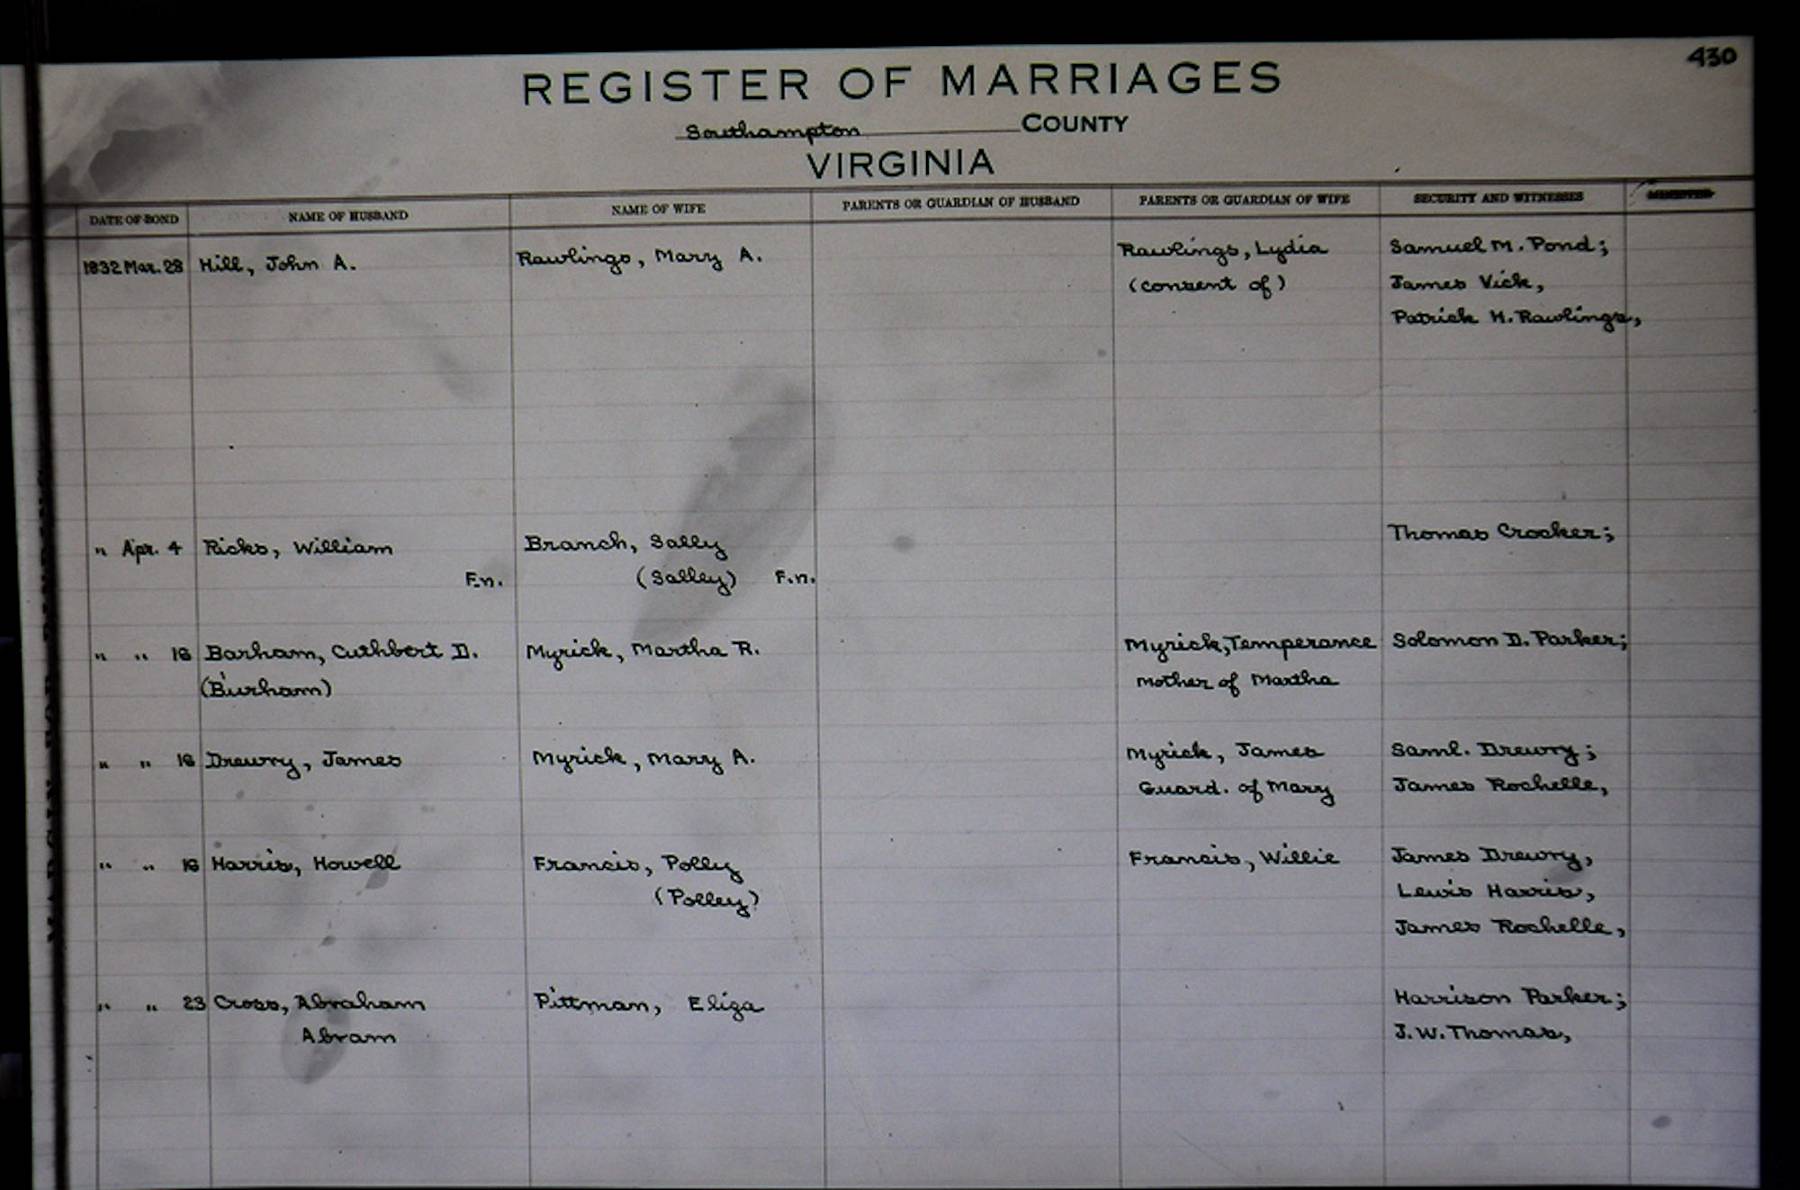 430
REGISTER OF MARRIAGES
Southampton COUNTY
VIRGINIA
DATE OF BOND NAME OF HUSBAND NAME OF WIFE PARENTS OR GUARDIAN OF HUSBAND PARENTS OR GUARDIAN OF WIFE SECURITY AND WITNESSES
1832 Mar. 28 Hill, John A. Rawlings, Mary A. Rawlings, Lydia Samuel M. Pond;
(consent of) James Vick,
Patrick H. Rawlings,
" Apr. 4 Ricks, William Branch, Sally Thomas Crocker;
F.n. (Salley) F.n.
" " 16 Barham, Cuthbert D. Myrick, Martha R. Myrick, Temperance Solomon D. Parker;
(Burham) mother of Martha
" " 16 Drewry, James Myrick, Mary A. Myrick, James Saml. Drewry;
Guard. of Mary James Rochelle,
" " 16 Harris, Howell Francis, Polly Francis, Willie James Drewry,
(Polley) Lewis Harris,
James Rochelle,
" " 23 Cross, Abraham Pittman, Eliza Harrison Parker;
Abram J. W. Thomas,